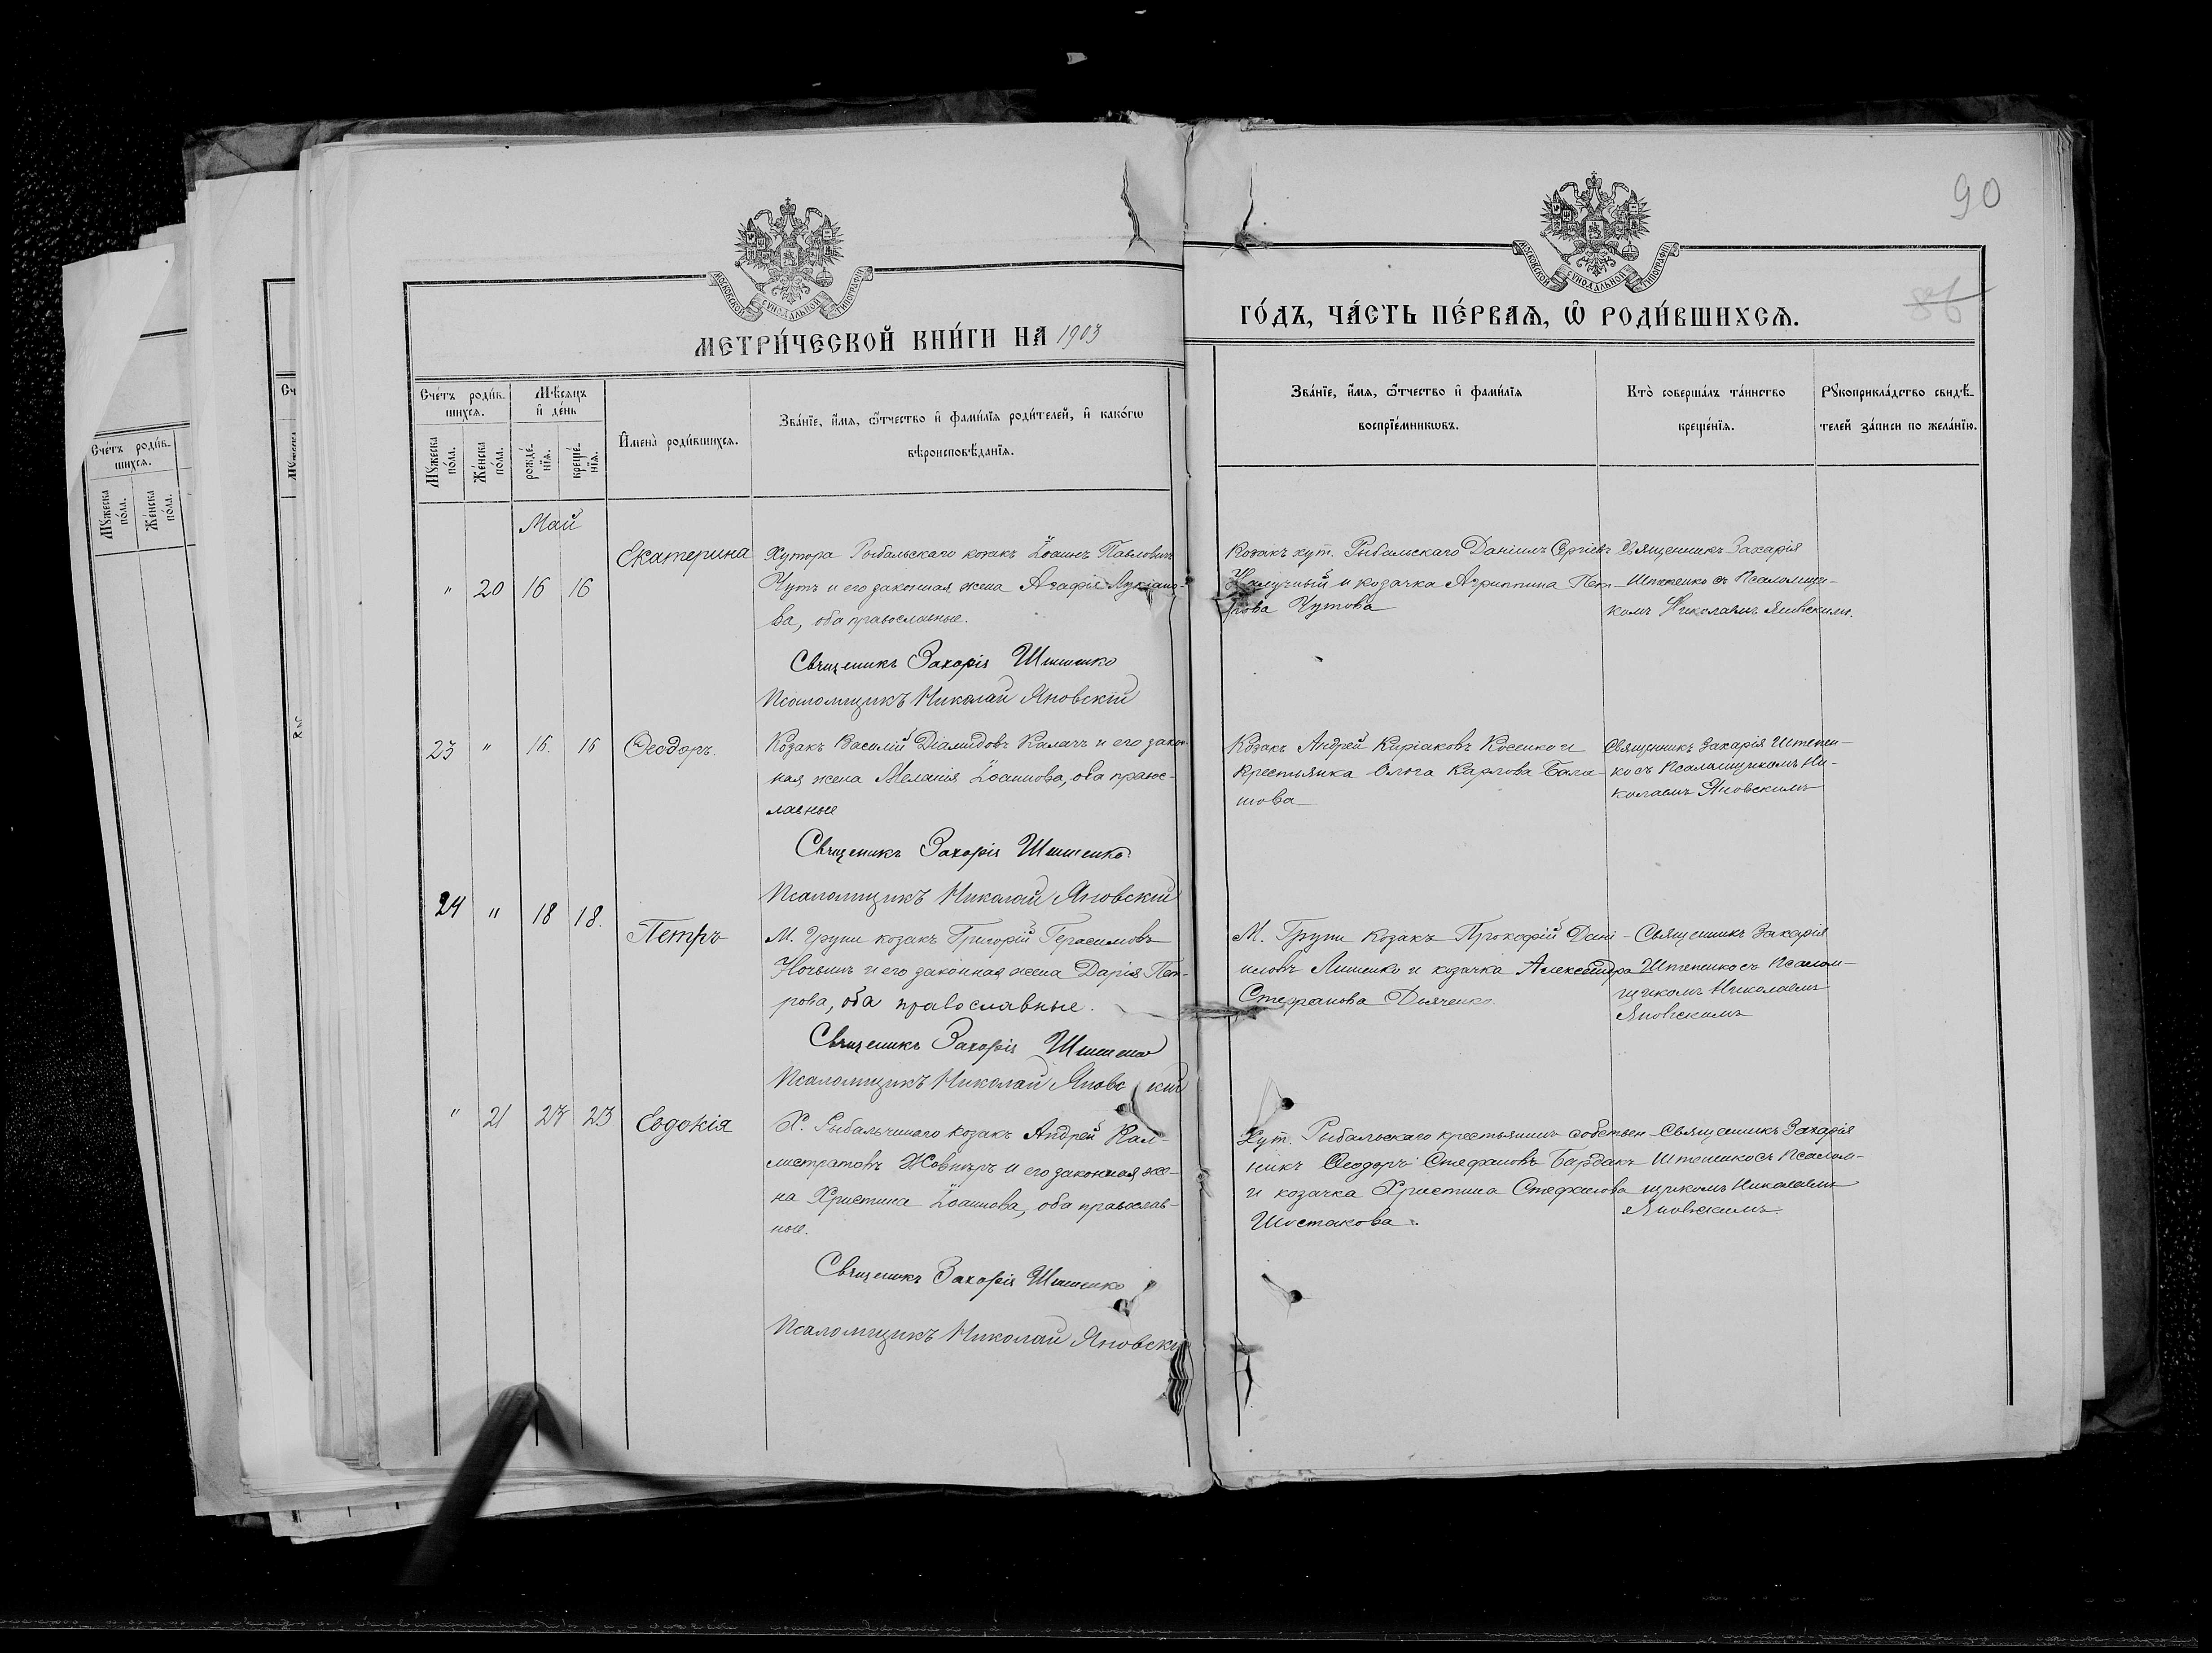 90
86
МОСКОВСКОЙ СѴНОДАЛЬНОЙ ТИПОГРАФІИ
МОСКОВСКОЙ СѴНОДАЛЬНОЙ ТИПОГРАФІИ
МЕТРИ́ЧЕСКОЙ КНИ́ГИ НА 1903
ГО́ДЪ, ЧА́СТЬ ПЕ́РВАѦ, Ѡ҆ РОДИ́ВШИХСѦ.
Сче́тъ роди́в-
шихсѧ.
Мꙋ́жеска по́ла.
Же́нска по́ла.
Мѣ́сѧцъ и҆ де́нь
рожде́-нїѧ.
креще́-нїѧ.
И҆мена̀ роди́вшихсѧ.
Зва́нїе, и҆́мѧ, ѻ҆́тчество и҆ фами́лїѧ роди́телей, и҆ како́гѡ
вѣроисповѣ́данїѧ.
Зва́нїе, и҆́мѧ, ѻ҆́тчество и҆ фами́лїѧ
воспрїе́мникѡвъ.
Кто̀ соверша́лъ та́инство
креще́нїѧ.
Рꙋкоприкла́дство свидѣ́-
телей за́писи по жела́нїю.
Май
" 20 16 16 Екатерина
Хутора Рыбальскаго козакъ Іоаннъ Павловичъ
Чутъ и его законная жена Агафія Лукіано-
ва, оба православные.
Священникъ Захарія
Николай Яновскій
Козакъ хут. Рыбальскаго Даніилъ Сергіевъ
и козачка Агриппина Пет-
рова Чутова
Священникъ Захарія
съ Псаломщи-
комъ Николаемъ Яновскимъ.
23 " 16. 16 Ѳеодоръ.
Козакъ Василій Діамидовъ Калачъ и его закон-
ная жена Меланія Іоаннова, оба правос-
лавные
Священникъ Захарія
Псаломщикъ Николай Яновскій
Козакъ Андрей Киріаковъ Косенко и
Крестьянка Ольга Карлова Бала-
шова
Священникъ Захарія
съ Псаломщикомъ Ни-
колаемъ Яновскимъ
24 " 18 18. Петръ
М. Груни козакъ Григорій Герасимовъ
и его законная жена Дарія Пет-
рова, оба православные.
Священникъ Захарія
Псаломщикъ Николай Яновскій
М. Груни Козакъ Прокофій Дані-
иловъ Лишенко и козачка Александра
Стефанова Дьяченко.
Священникъ Захарія
съ Псалом-
щикомъ Николаемъ
Яновскимъ
" 21 23 23 Евдокія
Х. Рыбальчинаго козакъ Андрей Кал-
листратовъ Жовниръ и его законная же-
на Христина Іоаннова, оба православ-
ные.
Священникъ Захарія
Псаломщикъ Николай Яновскій
Хут. Рыбальскаго крестьянинъ собствен-
никъ Ѳеодоръ Стефановъ Бардакъ
и козачка Христина Стефанова
Шостакова.
Священникъ Захарія
съ Псалом-
щикомъ Николаемъ
Яновскимъ.